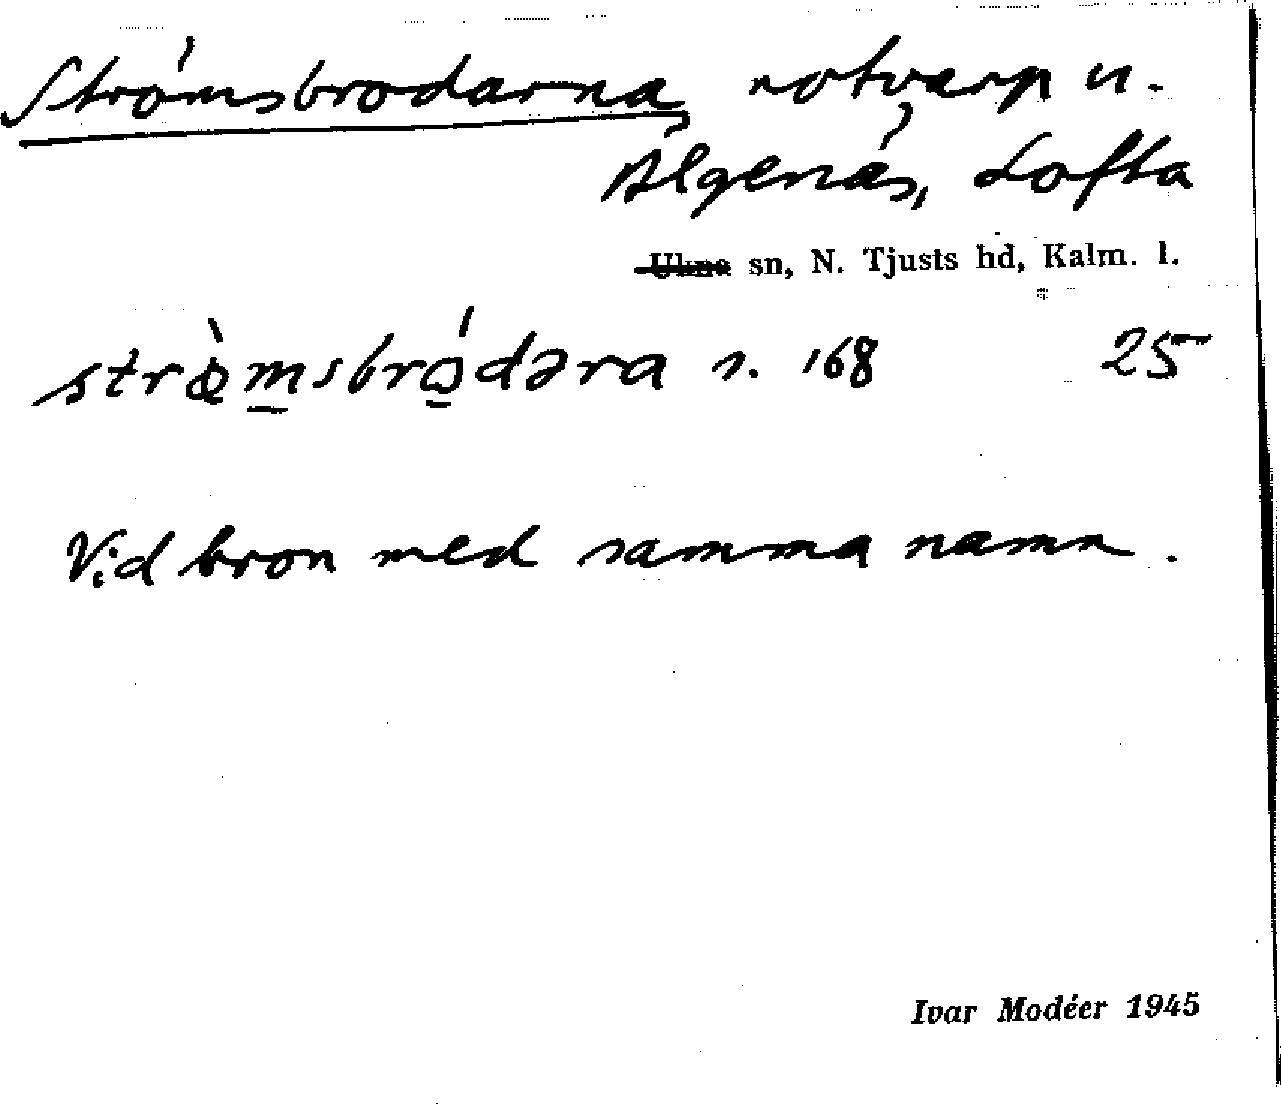 Strömsbrodarna, notvarp u.
Älgenäs, Lofta
Ukna sn, N. Tjusts hd, Kalm. l.
strø̀msbró̱dəra s. 168 25
Vid bron med samma namn.
Ivar Modéer 1945